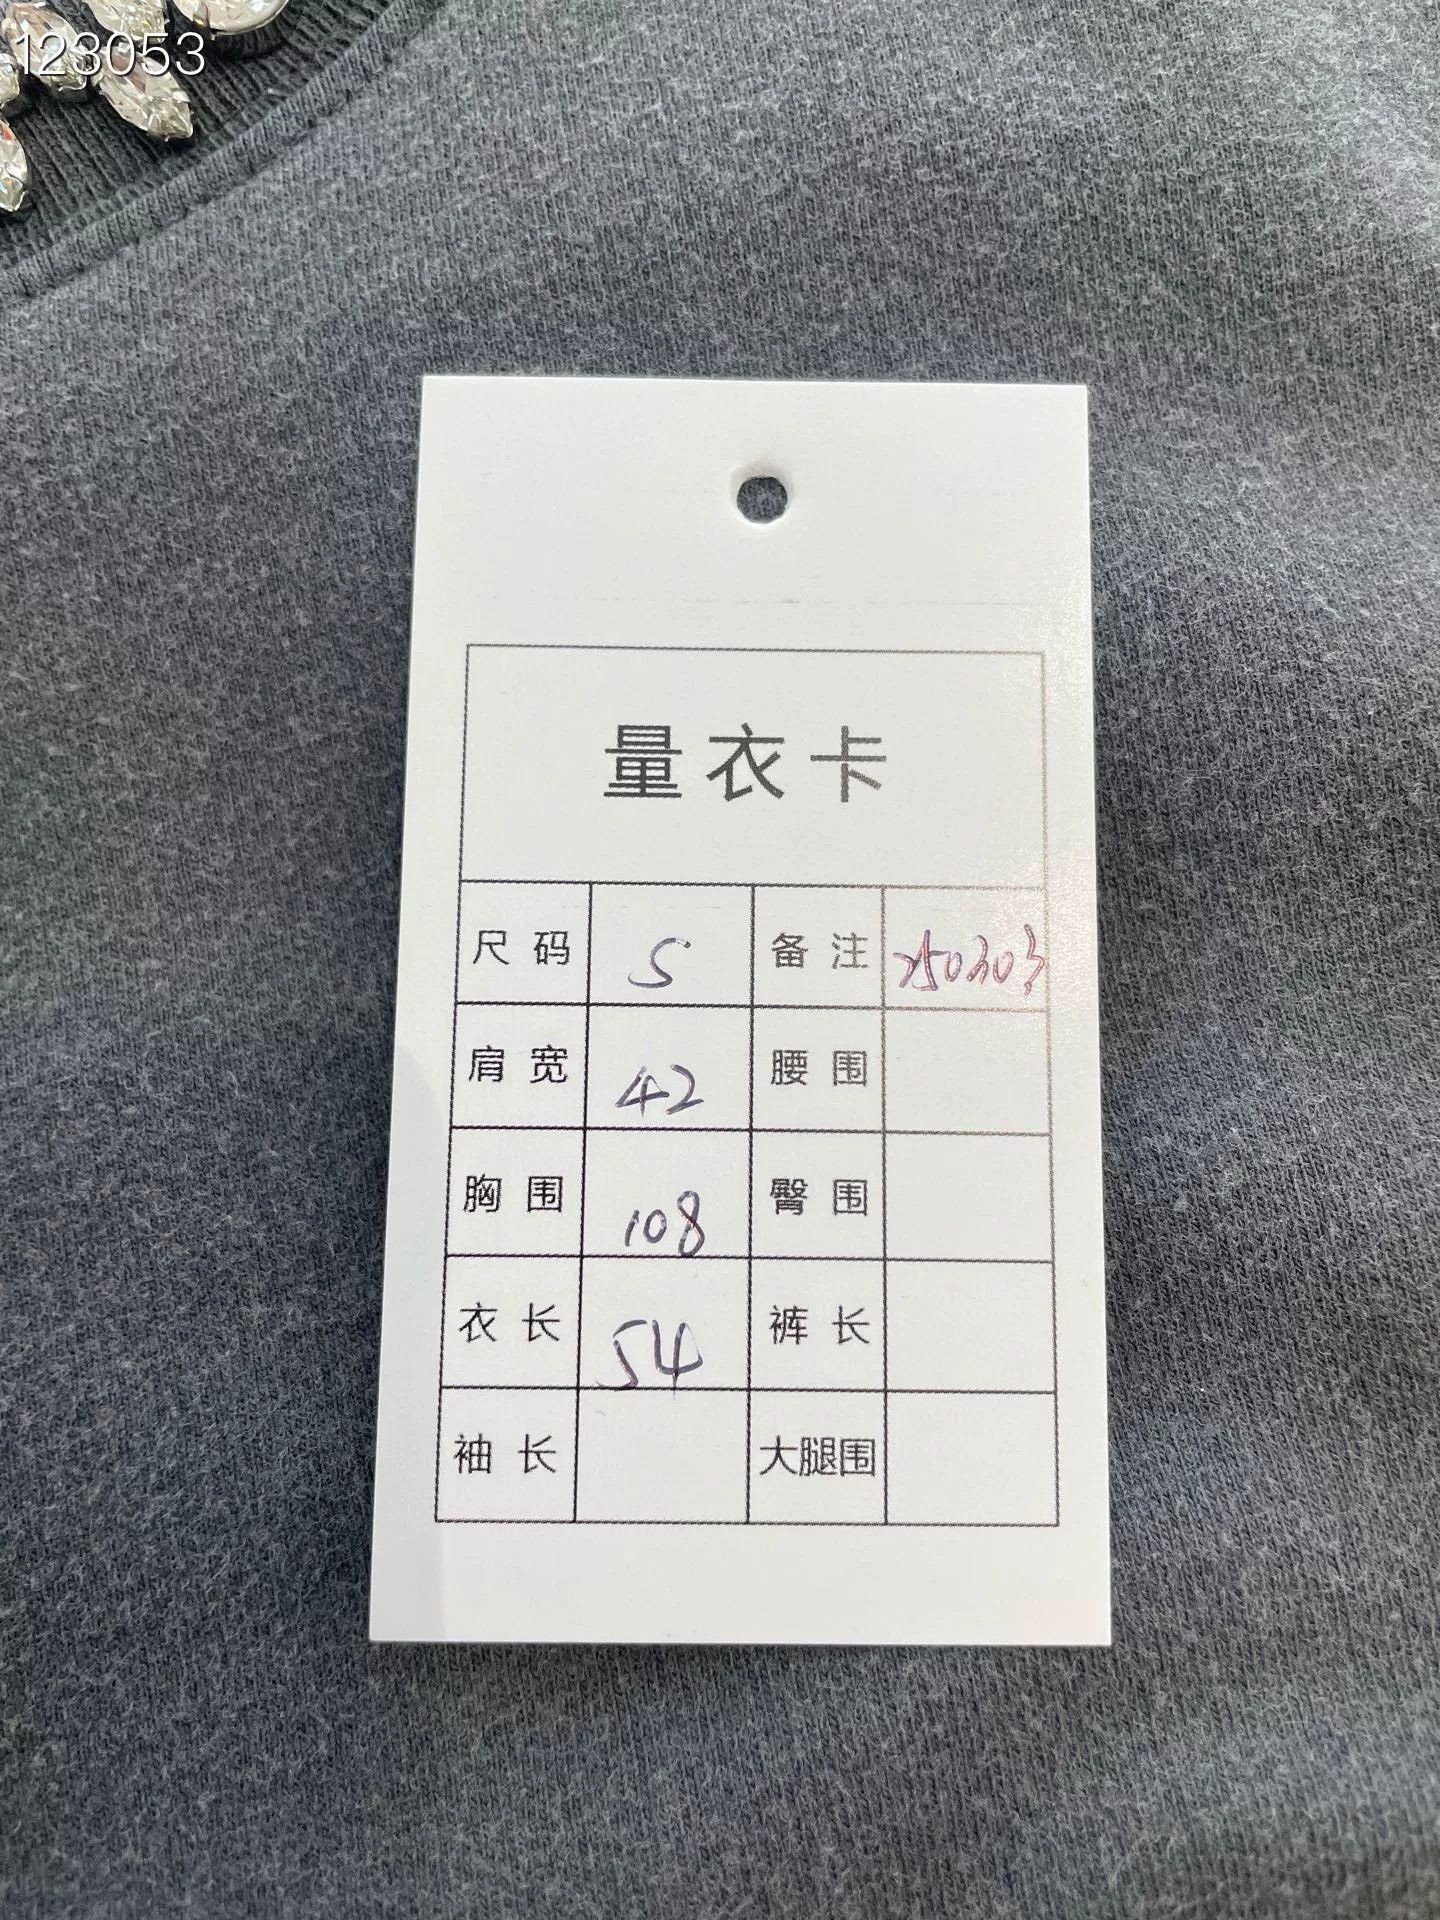 123053
量衣卡
尺码 S 备注 250303
肩宽 42 腰围
胸围 108 臀围
衣长 54 裤长
袖长 大腿围